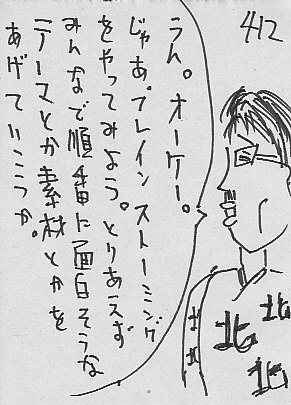 412
うん。オーケー。
じゃあ。ブレインストーミング
をやってみよう。とりあえず
みんなで順番に面白そうな
テーマとか素材とかを
あげていこうか。
北
北
北
北
北
北